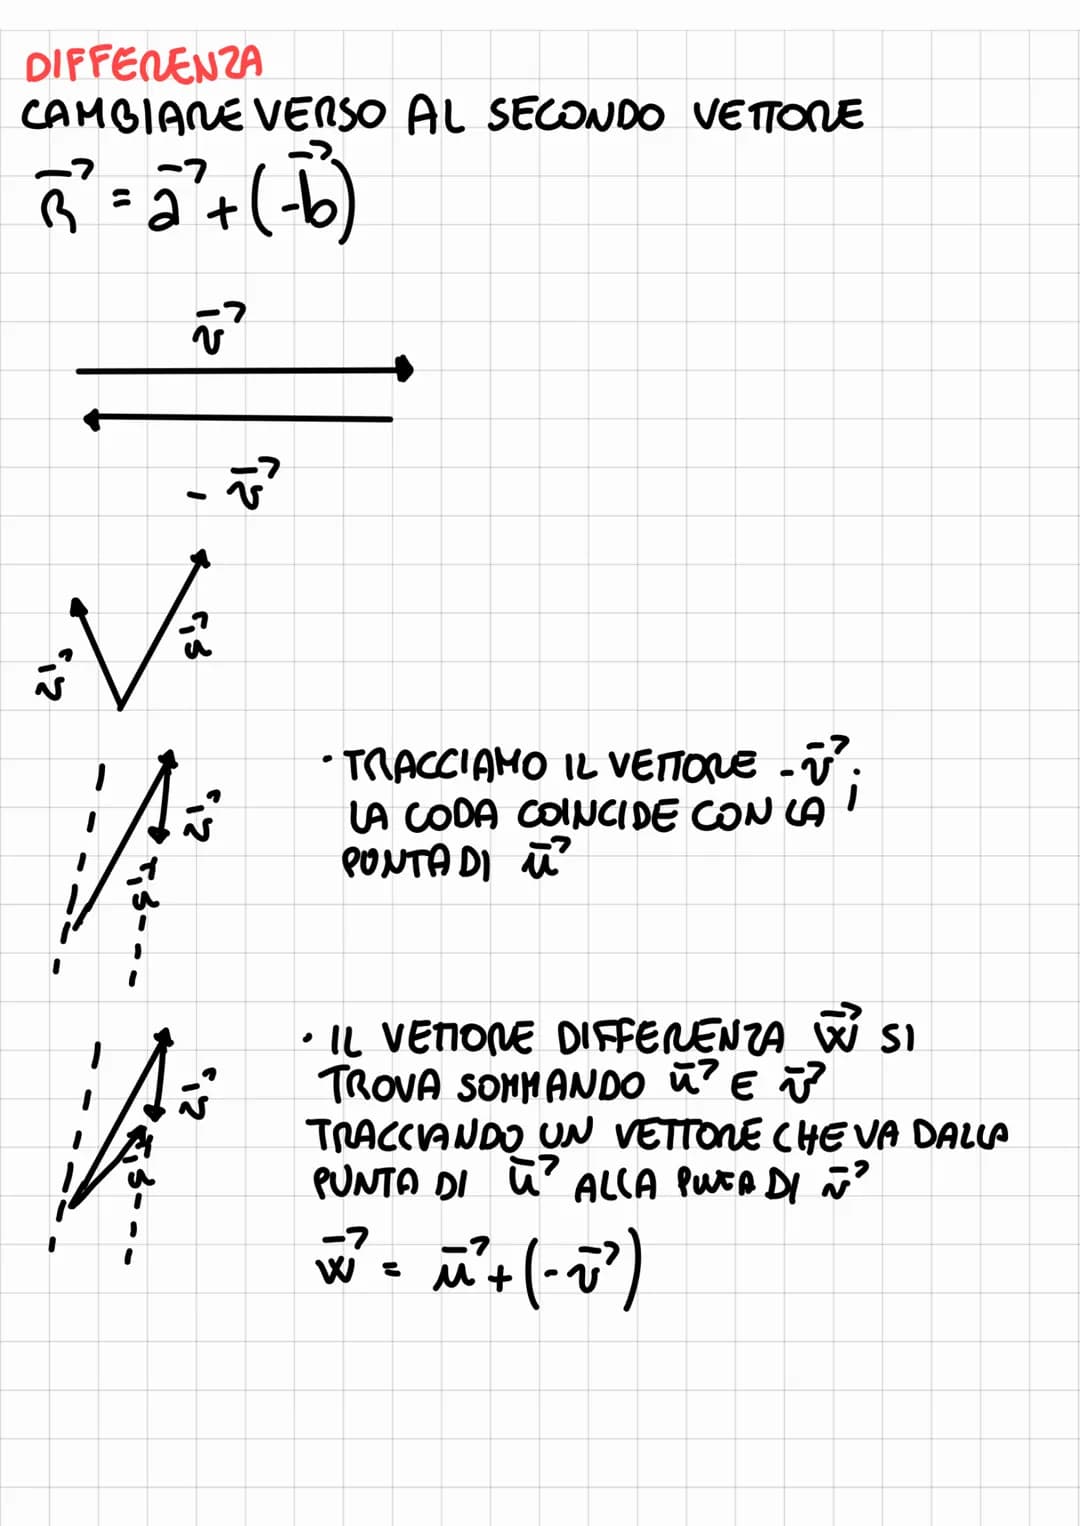 DIFFERENZA
CAMBIARE VERSO AL SECONDO VETTORE
R⃗ = a⃗ + (-b⃗)
v⃗
- v⃗
v⃗
u⃗
v⃗
u⃗
· TRACCIAMO IL VETTORE -v⃗;
LA CODA COINCIDE CON LA
PUNTA DI u⃗
v⃗
u⃗
· IL VETTORE DIFFERENZA w⃗ SI
TROVA SOMMANDO u⃗ E v⃗
TRACCIANDO UN VETTORE CHE VA DALLA
PUNTA DI u⃗ ALLA PUNTA DI v⃗
w⃗ = u⃗ + (-v⃗)